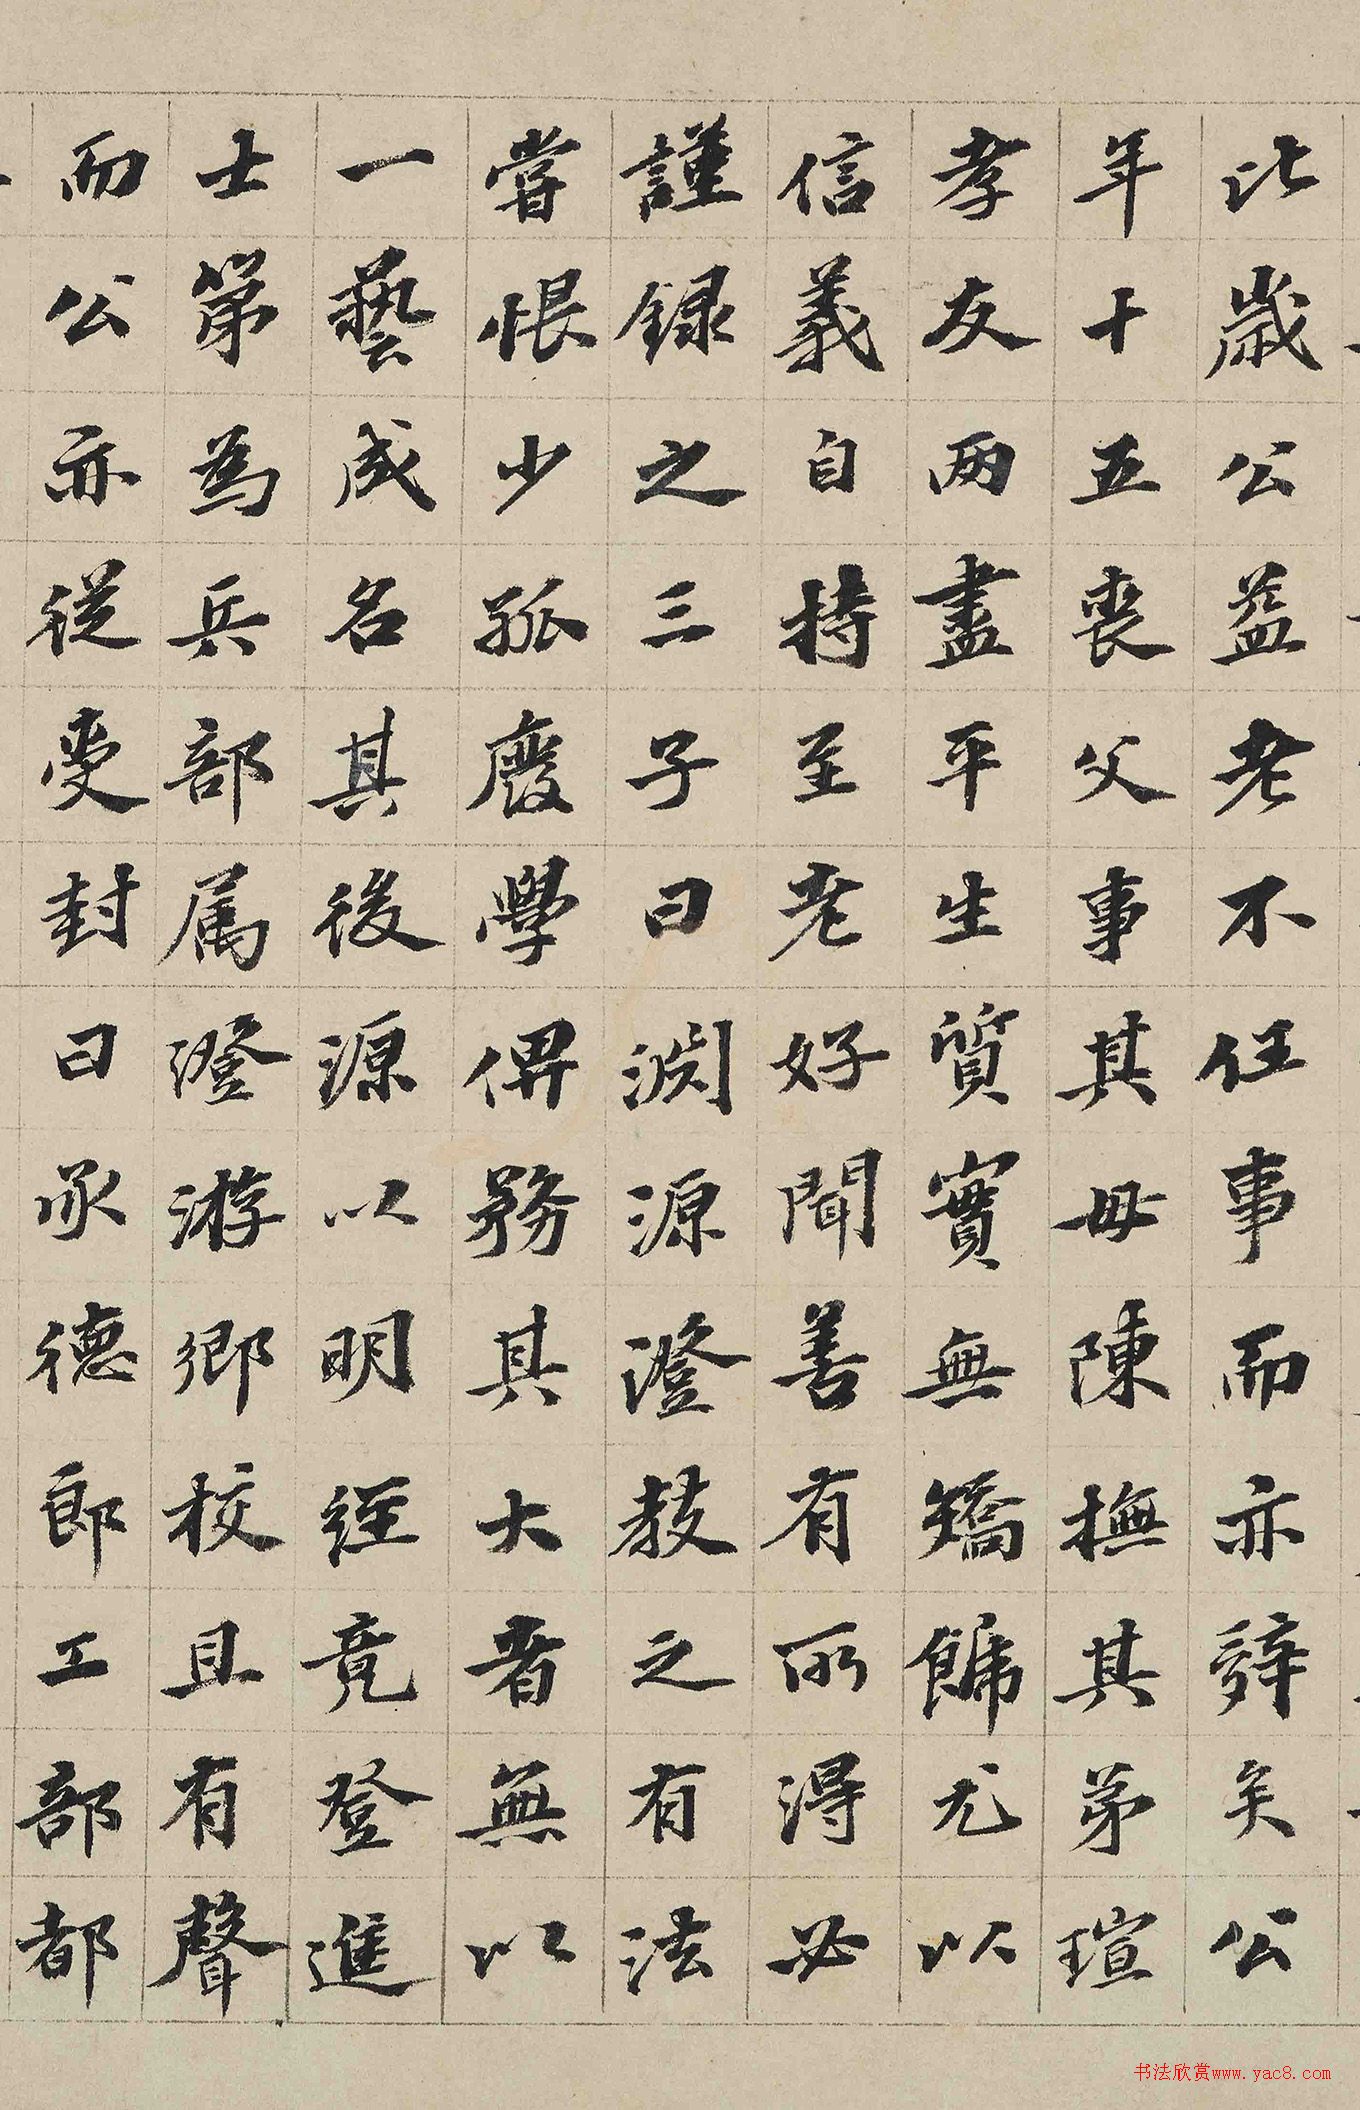 比歲公益老不任事而亦辭矣公
年十五喪父事其母陳撫其弟瑄
孝友兩盡平生質實無矯飾尤以
信義自持至老好聞善有所得必
謹録之三子曰淵源澄教之有法
嘗恨少孤廢學俾務其大者無以
一藝成名其後源以明經竟登進
士第為兵部属澄游鄉校且有聲
而公亦從受封曰承德郎工部都
书法欣赏www.yac8.com